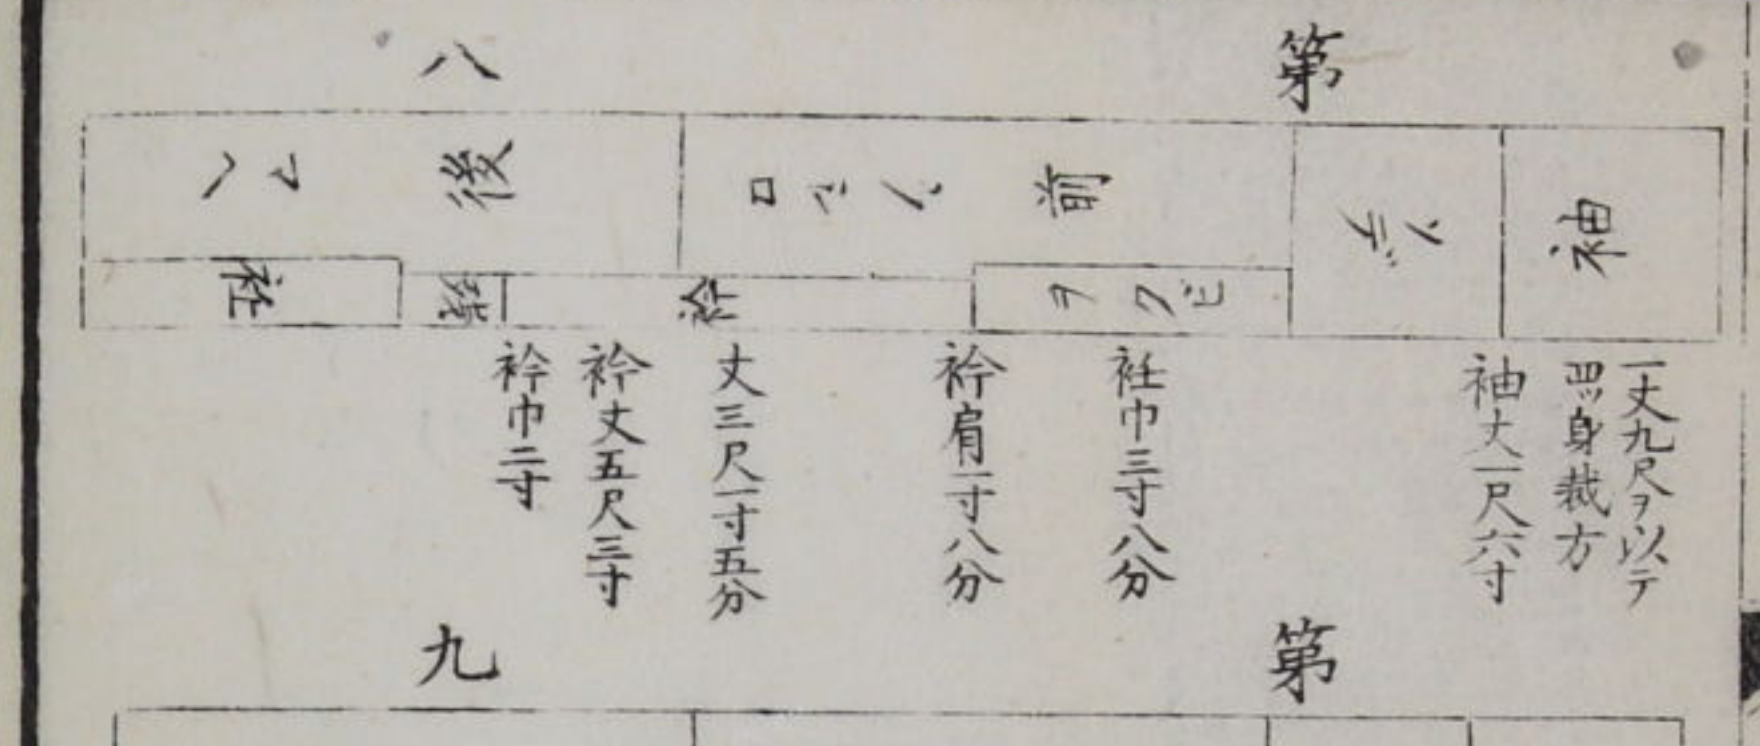 第八
袖
前
後
ヲクビ
衿
衽
一丈九尺ヲ以テ
四ツ身裁方
袖丈一尺六寸
衽巾三寸八分
衿肩一寸八分
丈三尺一寸五分
衿丈五尺三寸
衿巾二寸
第九